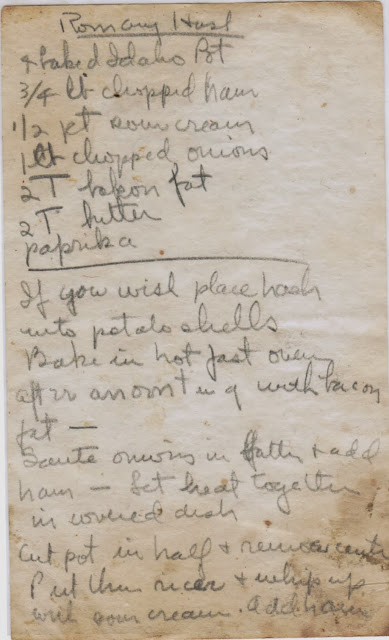 Romany Hash
4 baked Idaho Pot
3/4 lb chopped ham
1/2 pt sour cream
1 lb chopped onions
2 T bakon fat
2 T butter
paprika
If you wish place hash
into potato shells
Bake in hot fast oven
after anointing with bacon
fat —
Saute onions in fat + add
ham — Let heat together
in covered dish
Cut pot in half + remove centr
Put thru ricer + whip up
with sour cream. Add ham